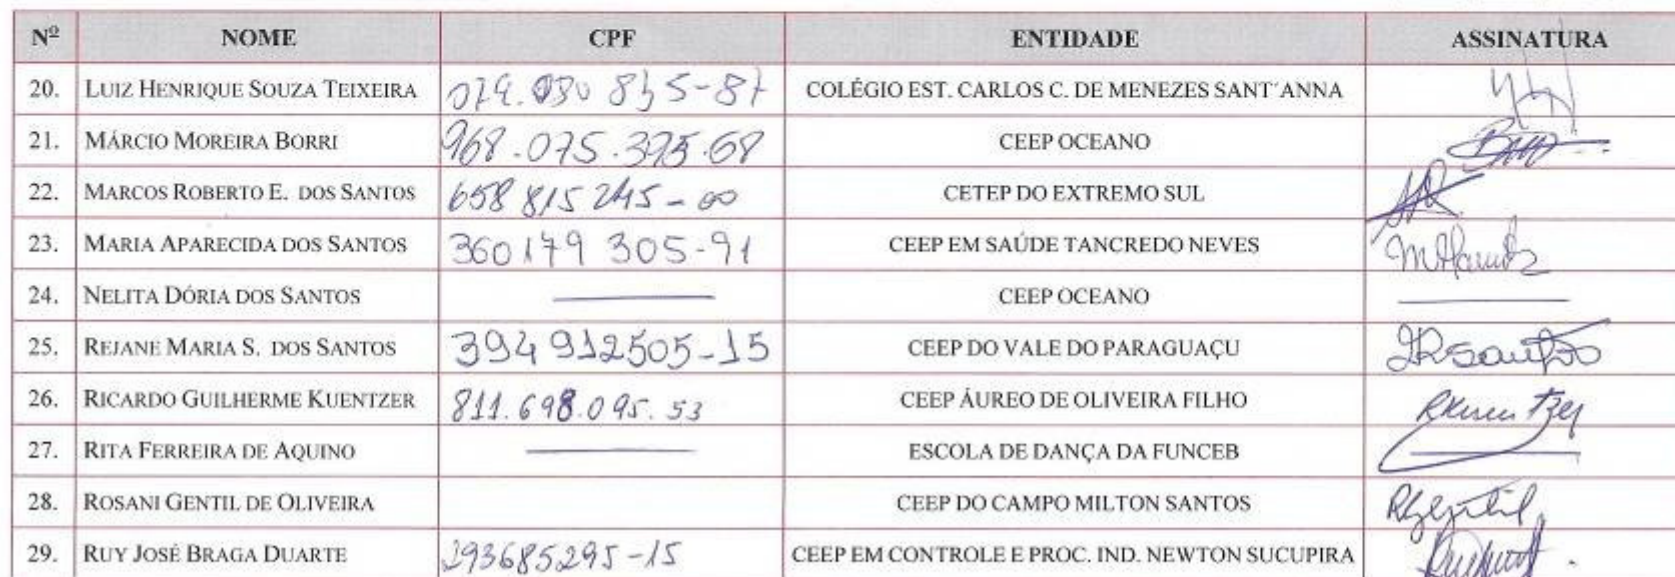 Nº NOME CPF ENTIDADE ASSINATURA
20. LUIZ HENRIQUE SOUZA TEIXEIRA COLÉGIO EST. CARLOS C. DE MENEZES SANT´ANNA
21. MÁRCIO MOREIRA BORRI 968.075.375.68 CEEP OCEANO
22. MARCOS ROBERTO E. DOS SANTOS 658 815 245-00 CETEP DO EXTREMO SUL
23. MARIA APARECIDA DOS SANTOS 360179 305-91 CEEP EM SAÚDE TANCREDO NEVES
24. NELITA DÓRIA DOS SANTOS CEEP OCEANO
25. REJANE MARIA S. DOS SANTOS 394 912505-15 CEEP DO VALE DO PARAGUAÇU
26. RICARDO GUILHERME KUENTZER 811.698.095.53 CEEP ÁUREO DE OLIVEIRA FILHO
27. RITA FERREIRA DE AQUINO ESCOLA DE DANÇA DA FUNCEB
28. ROSANI GENTIL DE OLIVEIRA CEEP DO CAMPO MILTON SANTOS
29. RUY JOSÉ BRAGA DUARTE 293685295-15 CEEP EM CONTROLE E PROC. IND. NEWTON SUCUPIRA